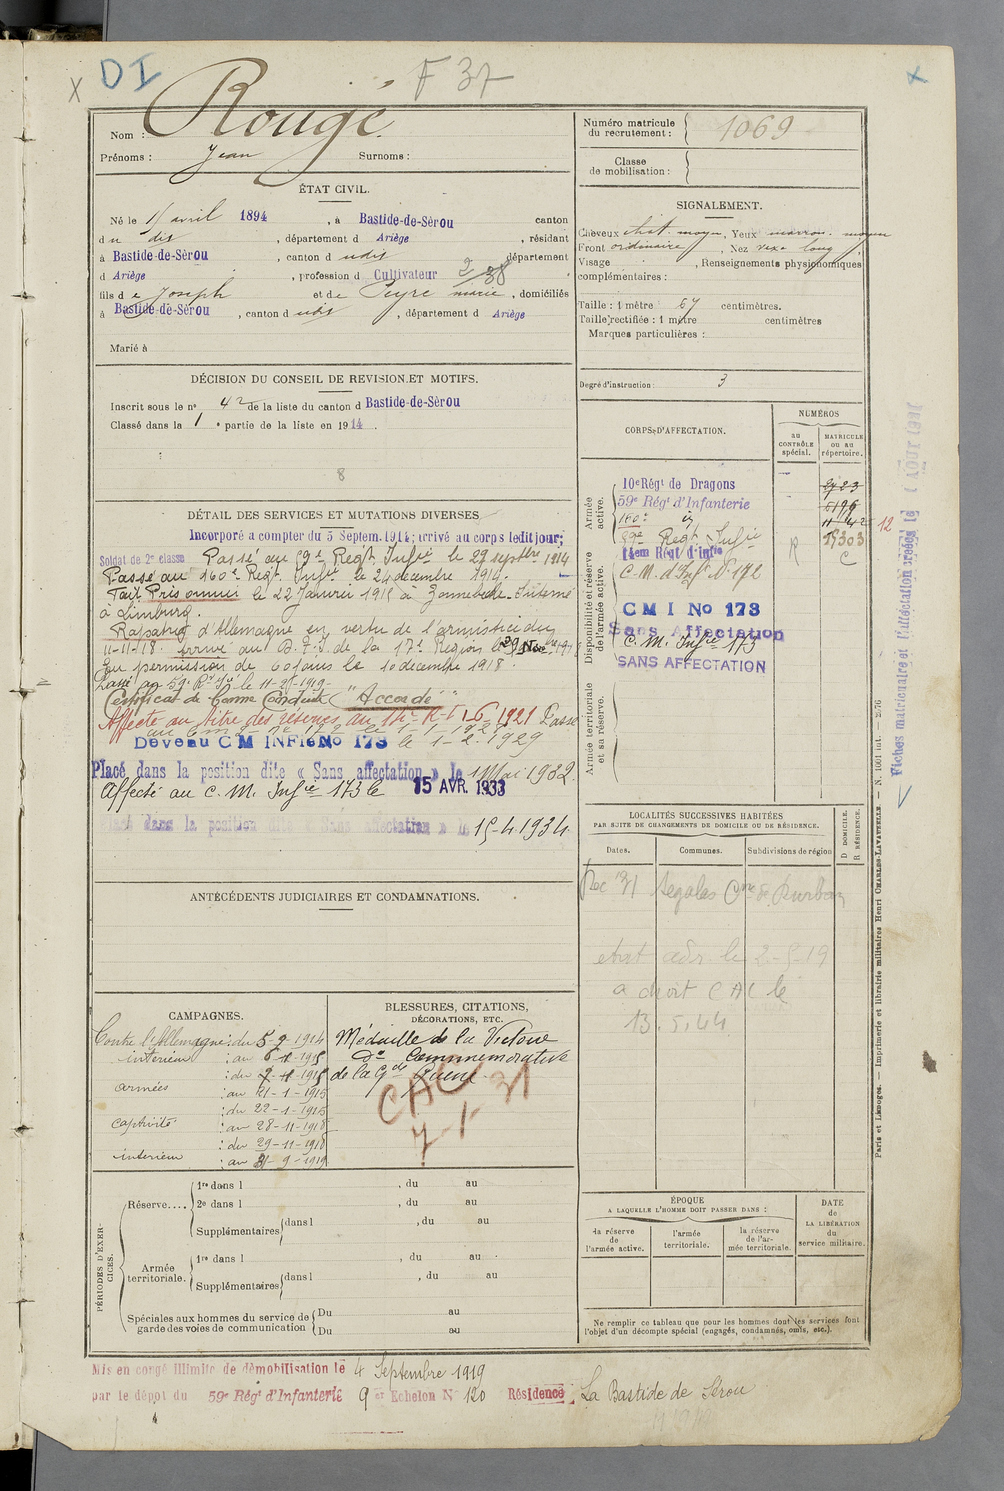 X DI F 37 X
Nom : Rougé
Prénoms : Jean Surnoms :
Numéro matricule du recrutement : 1069
Classe de mobilisation :
ÉTAT CIVIL.
Né le avril 1894, à Bastide-de-Sèrou canton
du dit, département d Ariège, résidant
à Bastide-de-Sèrou, canton d udit département
d Ariège, profession d Cultivateur
fils de Joseph et de Peyre marie, domiciliés
à Bastide-de-Sèrou, canton d udit, département d Ariège
Marié à
SIGNALEMENT.
Cheveux chat. moyen, Yeux marron moyen
Front ordinaire, Nez rexe long
Visage , Renseignements physionomiques
complémentaires :
Taille : 1 mètre 67 centimètres.
Taille rectifiée : 1 mètre centimètres
Marques particulières :
Degré d'instruction : 3
DÉCISION DU CONSEIL DE REVISION ET MOTIFS.
Inscrit sous le n° 42 de la liste du canton d Bastide-de-Sèrou
Classé dans la 1e partie de la liste en 1914.
8
DÉTAIL DES SERVICES ET MUTATIONS DIVERSES
Incorporé à compter du 5 Septem. 1914; arrivé au corps ledit jour;
Soldat de 2e classe Passé au 59e Regt Infie le 29 septbre 1914
Passé au 160e Regt. Infie le 24 decembre 1914.
Fait Prisonnier le 22 Janvier 1915 à Zonnebeke. Interné
à Limburg.
Rapatrié d'Allemagne en vertu de l'armistice du
11-11-18. arrivé au D. F. I. de la 17e Region le 29 Nov 1918
En permission de 60 jours le 10 decembre 1918.
Passé au 59e Rt Ie le 11-2-1919-
Certificat de Bonne Conduite "Accordé"
Affecté au titre des réserves au 14e R.T.I. 6-1921 Passé
au C M I n° 172 le 1-1-1927
Devenu C M INFie No 173 le 1-2-1929
Placé dans la position dite « Sans affectation » le 1 Mai 1932
Affecté au C. M. Infie 173 le 15 AVR. 1933
Placé dans la position dite « Sans affectation » le 15-4-1934
CORPS D'AFFECTATION.
NUMÉROS
au CONTRÔLE spécial.
MATRICULE ou au répertoire.
Armée active.
10e Régt de Dragons 2723
59e Régt d'Infanterie 6196
160e i 1142
59e Regt Infie R 15303
14em Régt d'infie C
Disponibilité et réserve de l'armée active.
C. M. d'Infie N° 172
C M I No 173
Sans Affectation
C. M. Infie 173
SANS AFFECTATION
Armée territoriale et sa réserve.
12
Fiches matriculaire et l'affectation créées le AOUT 1931
ANTÉCÉDENTS JUDICIAIRES ET CONDAMNATIONS.
LOCALITÉS SUCCESSIVES HABITÉES
PAR SUITE DE CHANGEMENTS DE DOMICILE OU DE RÉSIDENCE.
Dates. Communes. Subdivisions de région D DOMICILE. R RÉSIDENCE.
Dec 31 Segalas Cne de Durban
etat adr le 2-5-19
a droit CAC le
13.5.44
CAMPAGNES.
Contre l'Allemagne: du 5-9-1914
intérieur : au
: du
armées : au 21-1-1915
: du 22-1-1915
captivité : au 28-11-1918
: du 29-11-1918
intérieur : au -9-1919
BLESSURES, CITATIONS,
DÉCORATIONS, ETC.
Médaille de la Victoire
De Commemorative
de la Gde Guerre.
CAC
7-1-31
PÉRIODES D'EXERCICES.
Réserve.... 1re dans l , du au
2e dans l , du au
Supplémentaires dans l , du au
Armée territoriale. 1re dans l , du au
Supplémentaires dans l , du au
Spéciales aux hommes du service de garde des voies de communication Du au
Du au
ÉPOQUE
A LAQUELLE L'HOMME DOIT PASSER DANS :
la réserve de l'armée active. l'armée territoriale. la réserve de l'armée territoriale.
DATE de LA LIBÉRATION du service militaire.
Ne remplir ce tableau que pour les hommes dont les services font
l'objet d'un décompte spécial (engagés, condamnés, omis, etc.).
Paris et Limoges. — Imprimerie et librairie militaires Henri CHARLES-LAVAUZELLE. — N. 1001 int. — 2/76
Mis en congé illimité de démobilisation le 4 Septembre 1919
par le dépôt du 59e Régt d'Infanterie 9 er Echelon N° 120 Résidence : La Bastide de Sérou